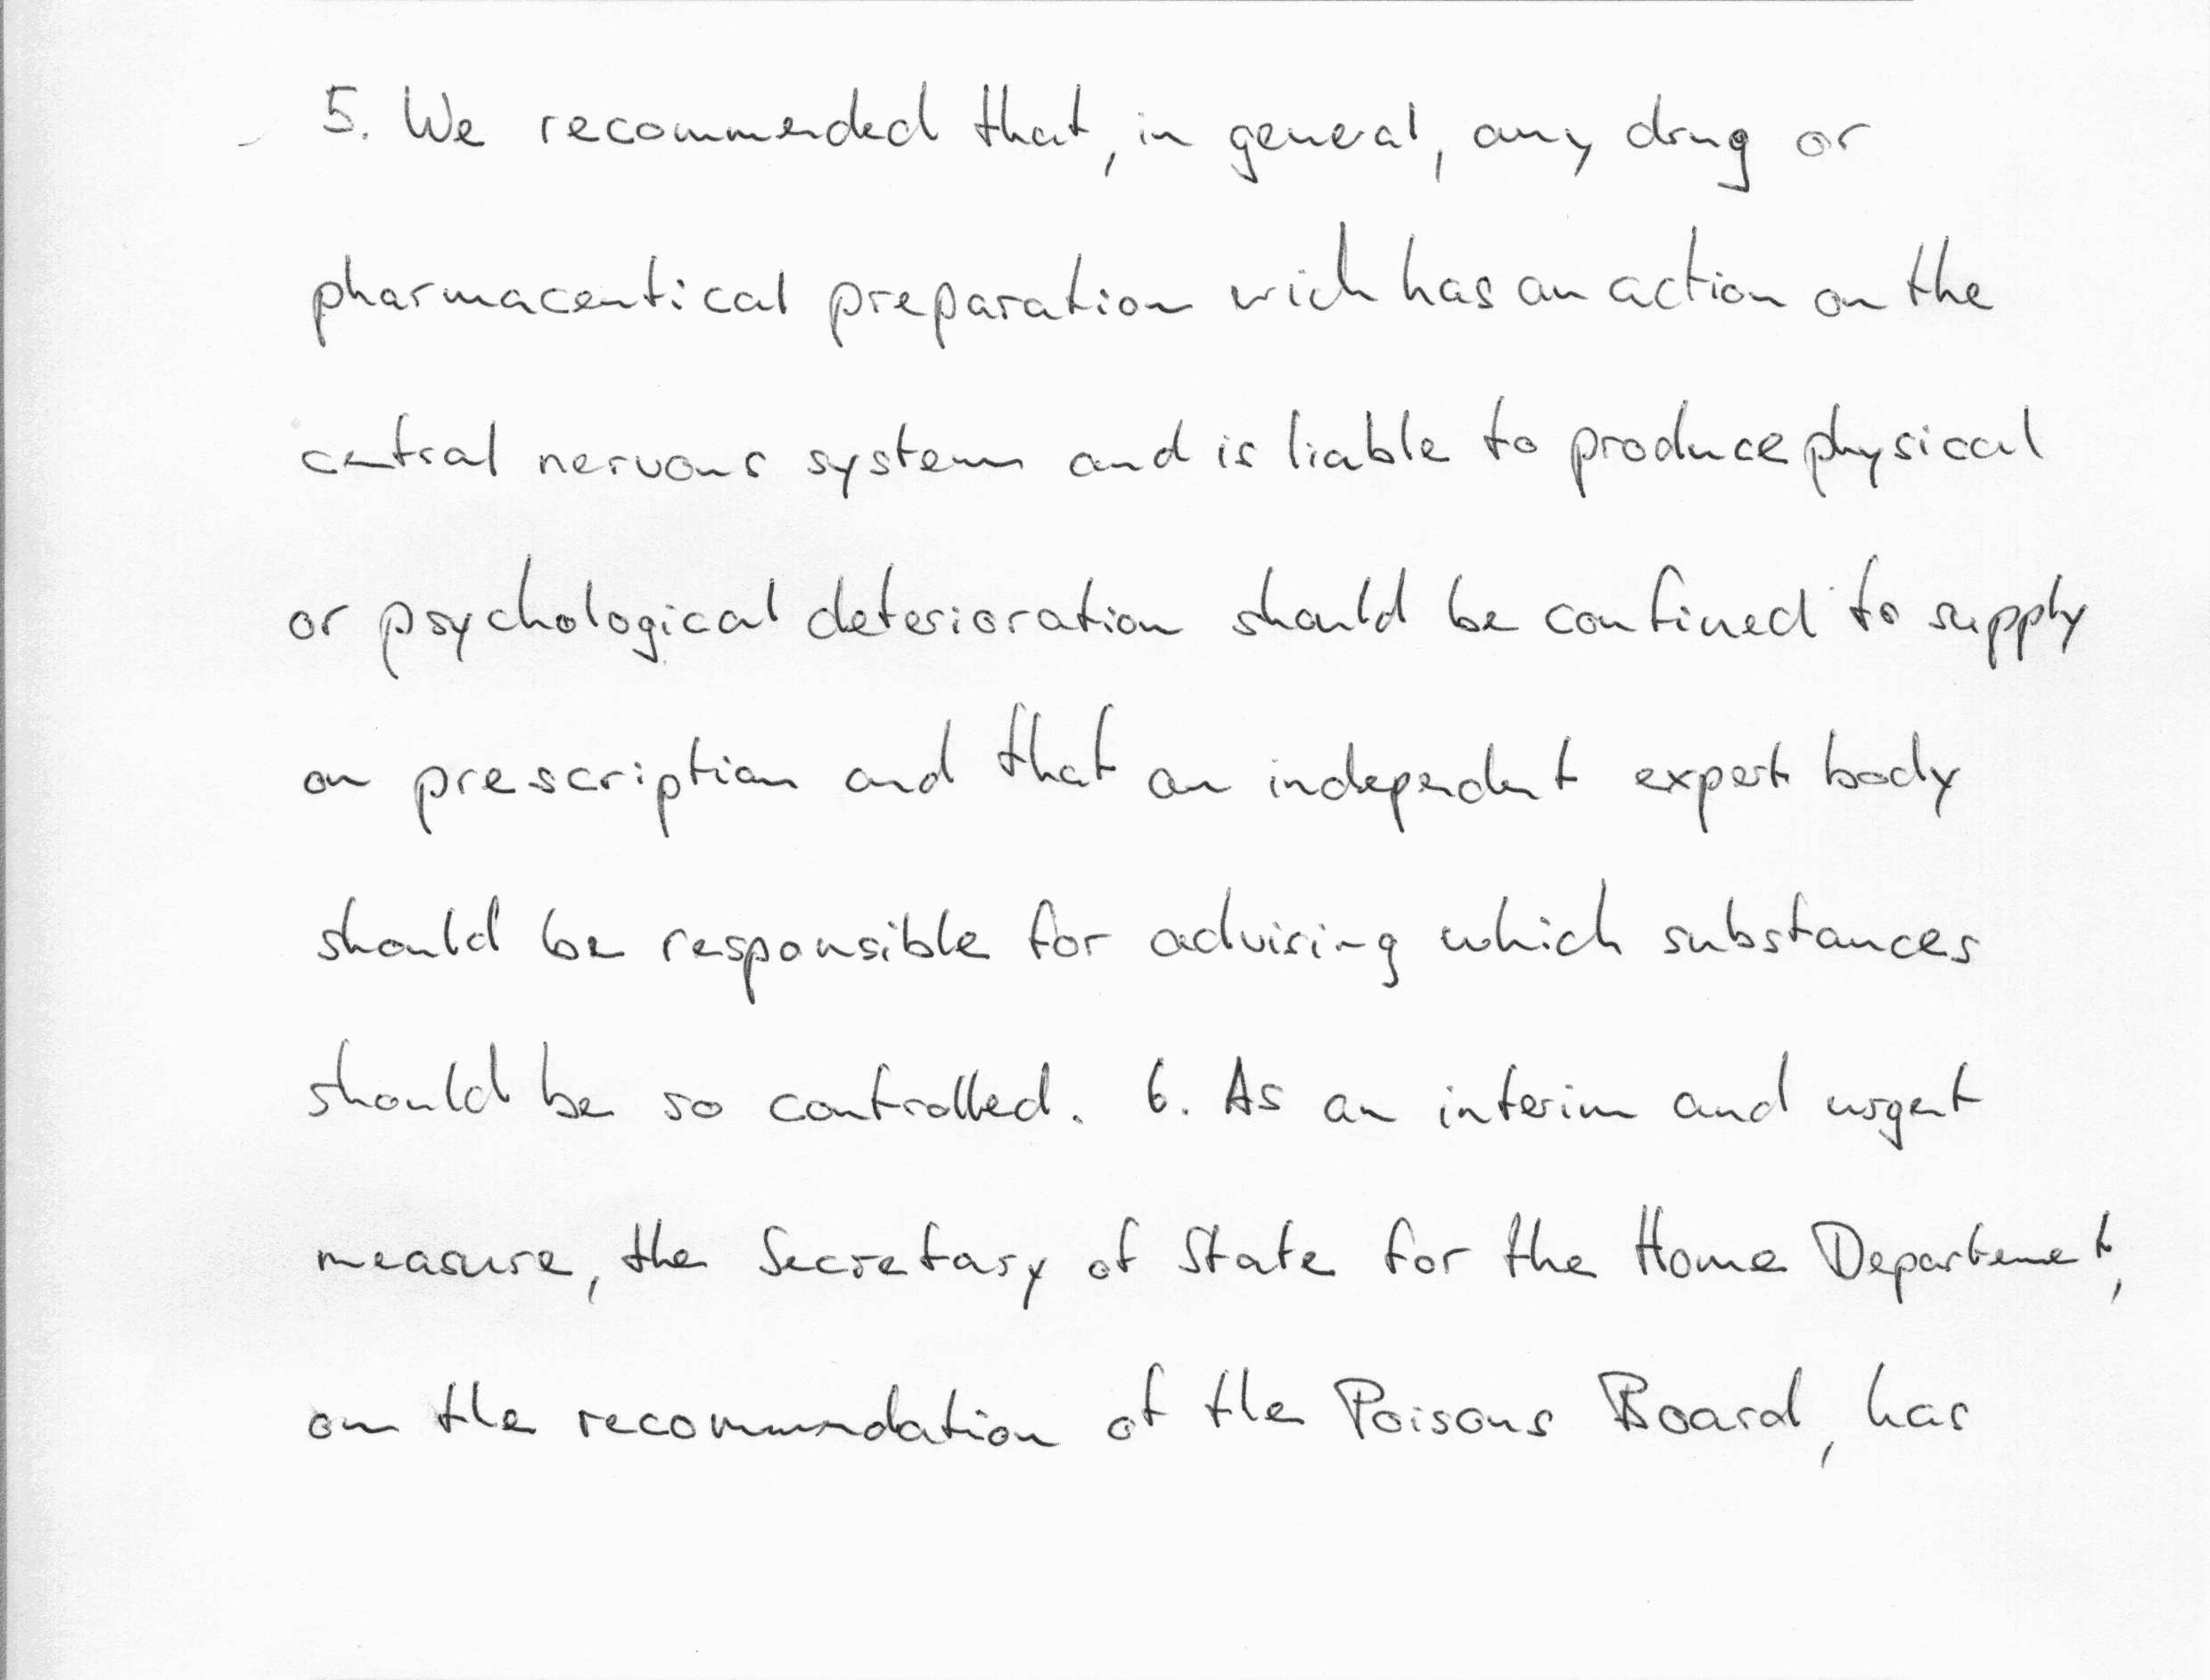 5. We recommended that, in general, any drug or
pharmaceutical preparation wich has an action on the
central nervous system and is liable to produce physical
or psychological deterioration should be confined to supply
on prescription and that an independent expert body
should be responsible for advising which substances
should be so controlled. 6. As an interim and urgent
measure, the Secretary of State for the Home Departement,
on the recommendation of the Poisons Board, has